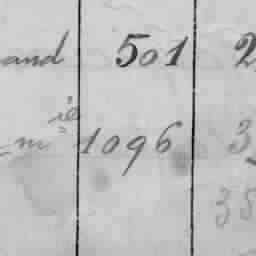 and 501 2
m 1096 3
35